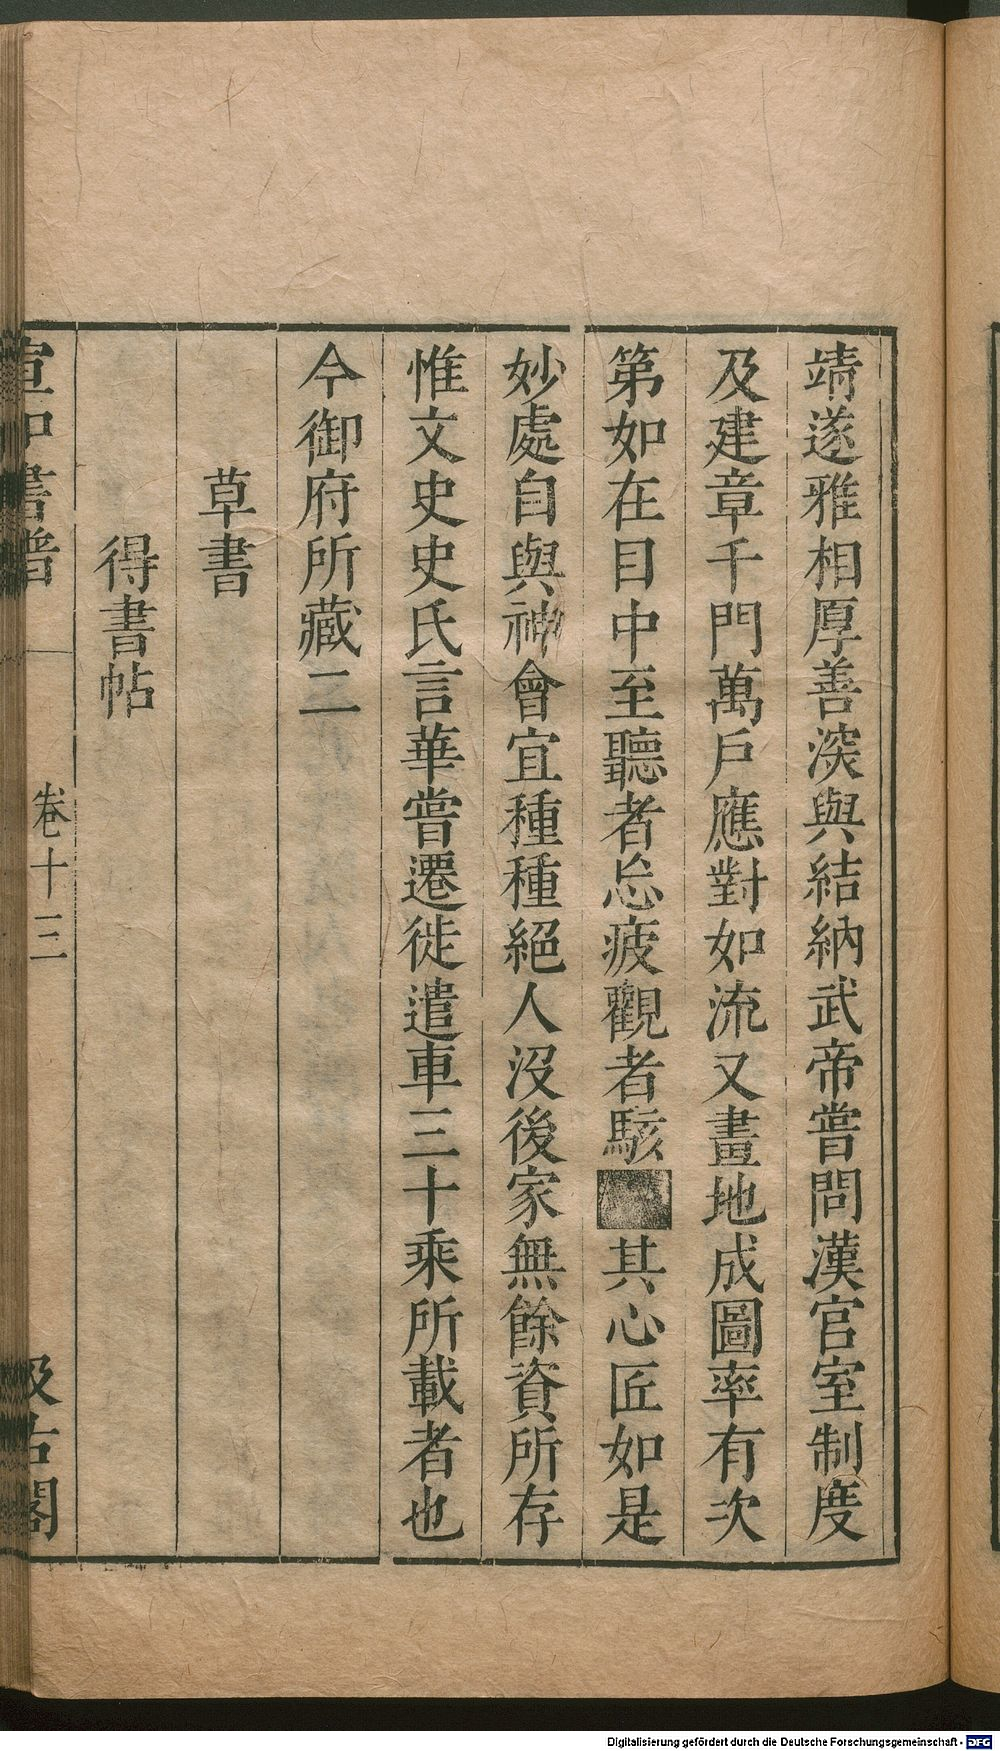 靖遂雅相厚善深與結納武帝嘗問漢宮室制度
及建章千門萬戶應對如流又畫地成圖率有次
第如在目中至聽者忘疲觀者駭其心匠如是
妙處自與神會宜種種絕人沒後家無餘資所存
惟文史史氏言華嘗遷徙遣車三十乘所載者也
今御府所藏二
草書
得書帖
宣和書譜 卷十三 汲古閣
Digitalisierung gefördert durch die Deutsche Forschungsgemeinschaft - DFG